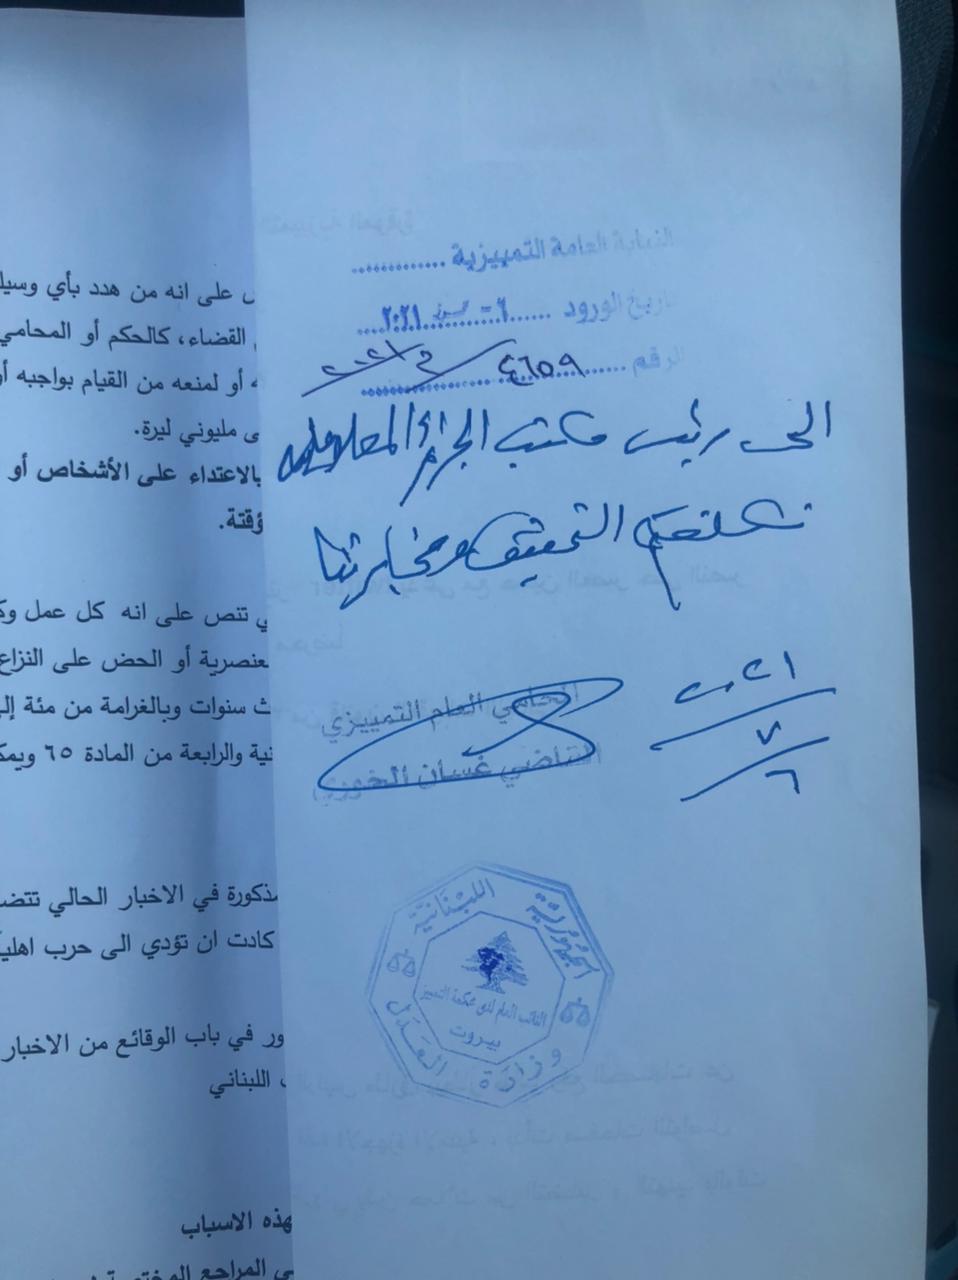 النيابة العامة التمييزية
تاريخ الورود ٦ - تموز ٢٠٢١
الرقم ٤٦٥٩ / م / ٢٠٢١
الى رئيس مكتب الجرائم المعلوماتية
التحقيق ومخابرتنا
٢٠٢١
٧
٦
المحامي العام التمييزي
القاضي غسان الخوري
الجمهورية اللبنانية
النائب العام لدى محكمة التمييز
بيروت
وزارة العدل
على انه من هدد بأي وسيلة
القضاء، كالحكم أو المحامي
أو لمنعه من القيام بواجبه أو
مليوني ليرة.
بالاعتداء على الأشخاص أو
تنص على انه كل عمل
أو الحض على النزاع
سنوات وبالغرامة من مئة
والرابعة من المادة ٦٥
في الاخبار الحالي
كادت ان تؤدي الى حرب
في باب الوقائع من الاخبار
اللبناني
لهذه الاسباب
المراجع المختصة